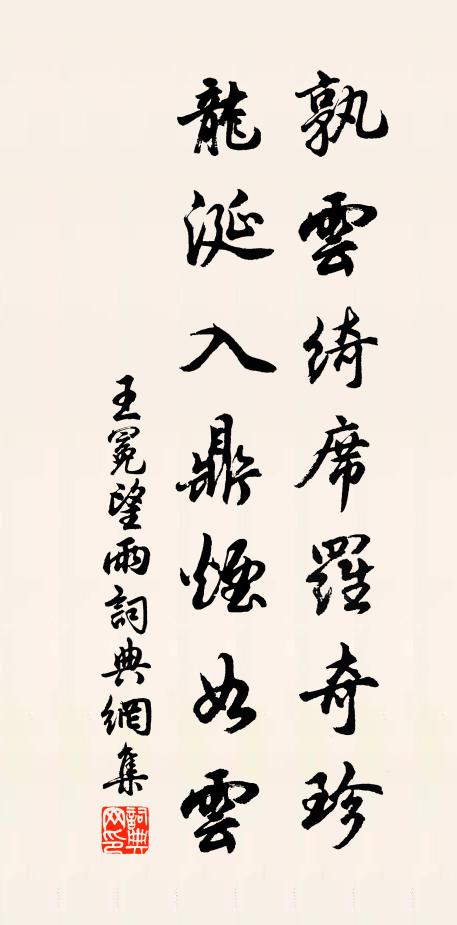 孰雲綺席羅奇珍
龍涎入鼎煙如雲
王冕望雨詞典網集
詞典網印